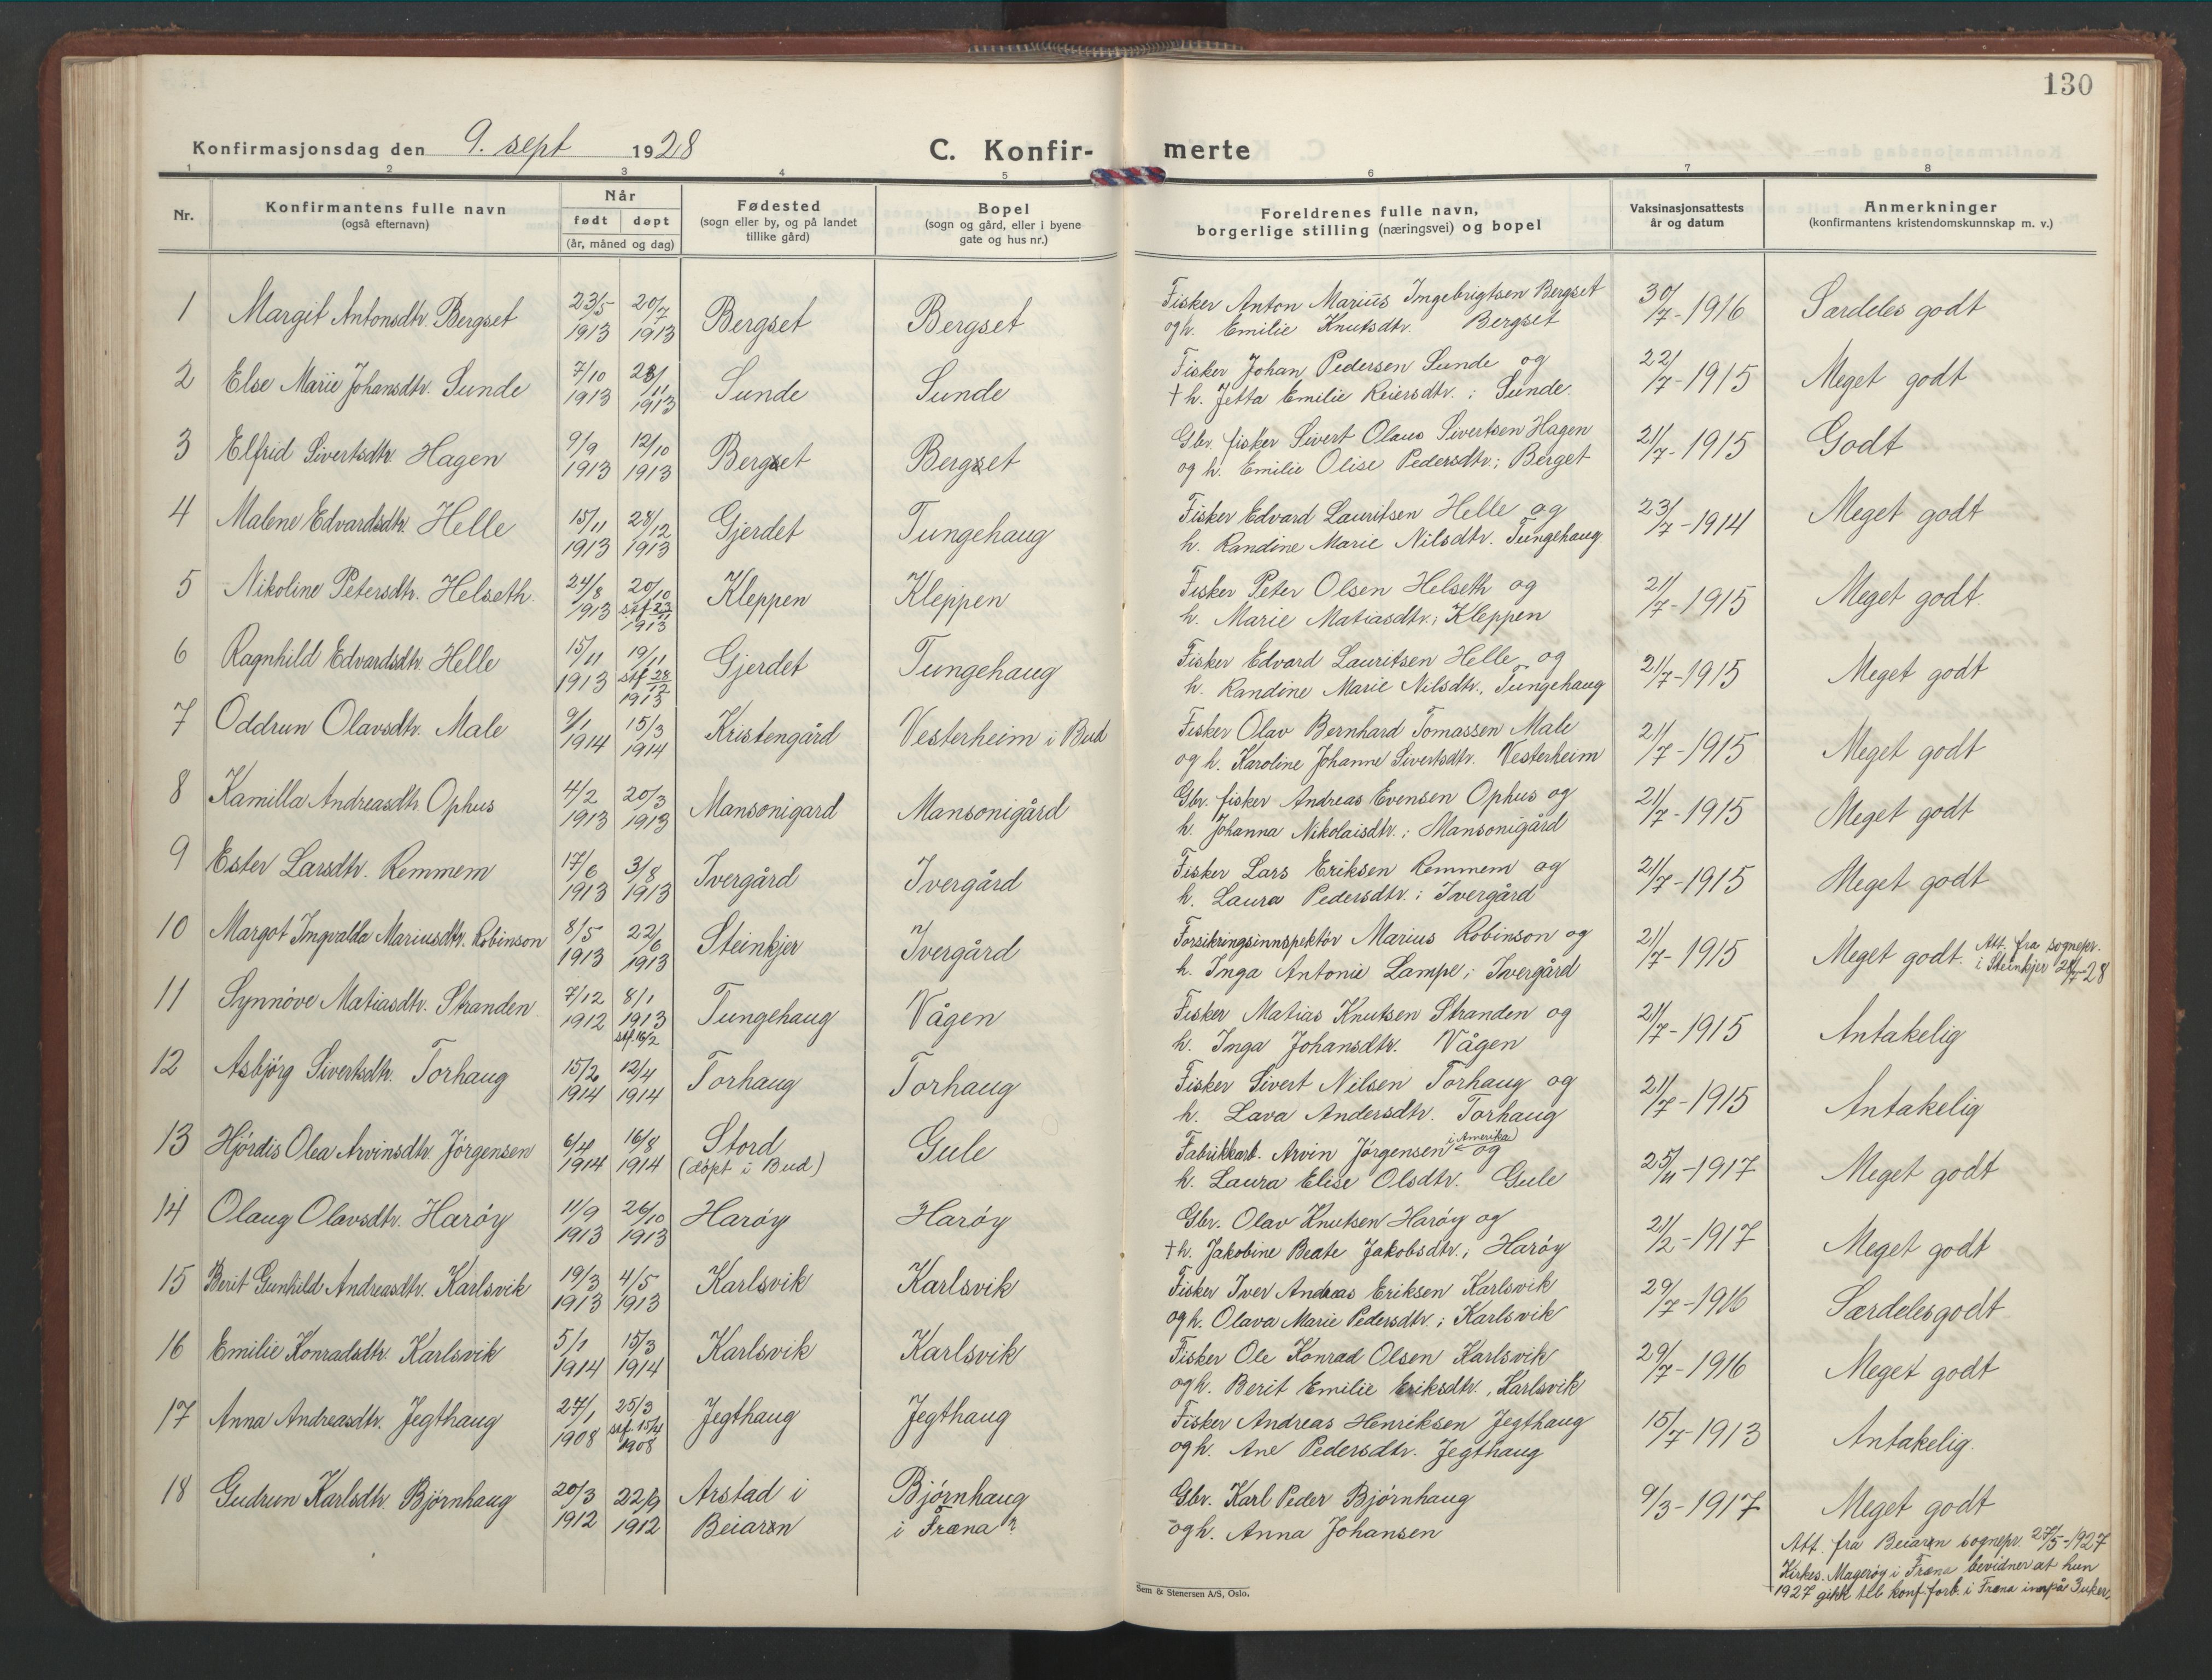 130
Konfirmasjonsdag den 9. sept 1928
C. Konfir- merte
1 2 3 4 5 6 7 8
Nr.
Konfirmantens fulle navn
(også efternavn)
Når
født døpt
(år, måned og dag)
Fødested
(sogn eller by, og på landet
tillike gård)
Bopel
(sogn og gård, eller i byene
gate og hus nr.)
Foreldrenes fulle navn,
borgerlige stilling (næringsvei) og bopel
Vaksinasjonsattests
år og datum
Anmerkninger
(konfirmantens kristendomskunnskap m. v.)
1 Margit Antonsdtr. Bergset 23/5 1913 20/7 1913 Bergset Bergset Fisker Anton Marius Ingebrigtsen Bergset 30/7-1916 Særdeles godt
og h. Emilie Knutsdtr. Bergset
2 Else Marie Johansdtr. Sunde 7/10 1913 23/11 1913 Sunde Sunde Fisker Johan Pedersen Sunde og 22/7-1915 Meget godt
+ h. Jetta Emilie Reiersdtr. ; Sunde.
3 Elfrid Sivertsdtr. Hagen 9/9 1913 12/10 1913 Bergset Bergset Gbr. fisker Sivert Olaus Sivertsen Hagen 21/7-1915 Godt
og h. Emilie Olise Pedersdtr.; Berget
4 Malene Edvardsdtr. Helle 15/11 1913 28/12 1913 Gjerdet Tungehaug Fisker Edvard Lauritsen Helle og 23/7-1914 Meget godt
h. Randine Marie Nilsdtr. Tungehaug.
5 Nikoline Petersdtr. Helseth. 24/8 1913 20/10 stf 23/11 1913 Kleppen Kleppen Fisker Peter Olsen Helseth og 21/7-1915 Meget godt.
h. Marie Matiasdtr.; Kleppen
6 Ragnhild Edvardsdtr. Helle 15/11 1913 19/11 stf 28/12 1913 Gjerdet Tungehaug Fisker Edvard Lauritsen Helle og 21/7-1915 Meget godt
h. Randine Marie Nilsdtr., Tungehaug
7 Oddrun Olavsdtr. Male 9/1 1914 15/3 1914 Kristengård Vesterheim i Bud Fisker Olav Bernhard Tomassen Male 21/7-1915 Meget godt
og h. Karoline Johanne Sivertsdtr. Vesterheim
8 Kamilla Andreasdtr. Ophus 4/2 1913 20/3 1913 Mansonigard Mansonigård Gbr. fisker Andreas Evensen Ophus og 21/7-1915 Meget godt
h. Johanna Nikolaisdtr.; Mansonigård
9 Ester Larsdtr. Remmem 17/6 1913 3/8 1913 Ivergård Ivergård Fisker Lars Eriksen Remmem og 21/7-1915 Meget godt
h. Laura Pedersdtr.; Ivergård
10 Margot Ingvalda Mariusdtr. Robinson 8/5 1913 22/6 1913 Steinkjer Ivergård Forsikringsinnspektör Marius Robinson og 21/7-1915 Meget godt. Att. fra sognepr.
h. Inga Antonie Lampe; Ivergård i Steinkjer 28/7-28
11 Synnöve Matiasdtr. Stranden 7/12 1912 8/1 1913 stf. 16/2 Tungehaug Vågen Fisker Matias Knutsen Stranden og 21/7-1915 Antakelig
h. Inga Johansdtr. Vågen
12 Asbjørg Sivertsdtr. Torhaug 15/2 1914 12/4 1914 Torhaug Torhaug Fisker Sivert Nilsen Torhaug og 21/7-1915 Antakelig
h. Lava Andersdtr. Torhaug
13 Hjördis Olea Arvinsdtr. Jörgensen 6/4 1914 16/8 1914 Stord Gule Fabrikkarb. Arvin Jörgensen i Amerika og 25/11-1917 Meget godt
(döpt i Bud) h. Laura Elise Olsdtr. Gule
14 Olaug Olavsdtr. Haröy 11/9 1913 26/10 1913 Haröy Haröy Gbr. Olav Knutsen Haröy og 21/2-1917 Meget godt
+ h. Jakobine Beate Jakobsdtr.; Haröy
15 Berit Gunhild Andreasdtr. Karlsvik 19/3 1913 4/5 1913 Karlsvik Karlsvik Fisker Iver Andreas Eriksen Karlsvik 29/7-1916 Særdeles godt
og h. Olava Marie Pedersdtr.; Karlsvik
16 Emilie Konradsdtr. Karlsvik 5/1 1914 15/3 1914 Karlsvik Karlsvik Fisker Ole Konrad Olsen Karlsvik 29/7-1916 Meget godt
og h. Berit Emilie Eriksdtr., Karlsvik
17 Anna Andreasdtr. Jegthaug 27/1 1908 25/3 stf. 15/4 1908 Jegthaug Jegthaug Fisker Andreas Henriksen Jegthaug 15/7-1913 Antakelig.
og h. Ane Pedersdtr. Jegthaug
18 Gudrun Karlsdtr. Björnhaug 20/3 1912 22/9 1912 Arstad i Björnhaug Gbr. Karl Peder Björnhaug 9/3-1917 Meget godt
Beiarn i Fræna? og h. Anna Johansen
Att. fra Beiarn sognepr. 27/5-1927
Kirkes. Magerøy i Fræna bevidner at hun
1927 gikk til konf. forb. i Fræna innpå 3 uker.
Sem & Stenersen A/S, Oslo.